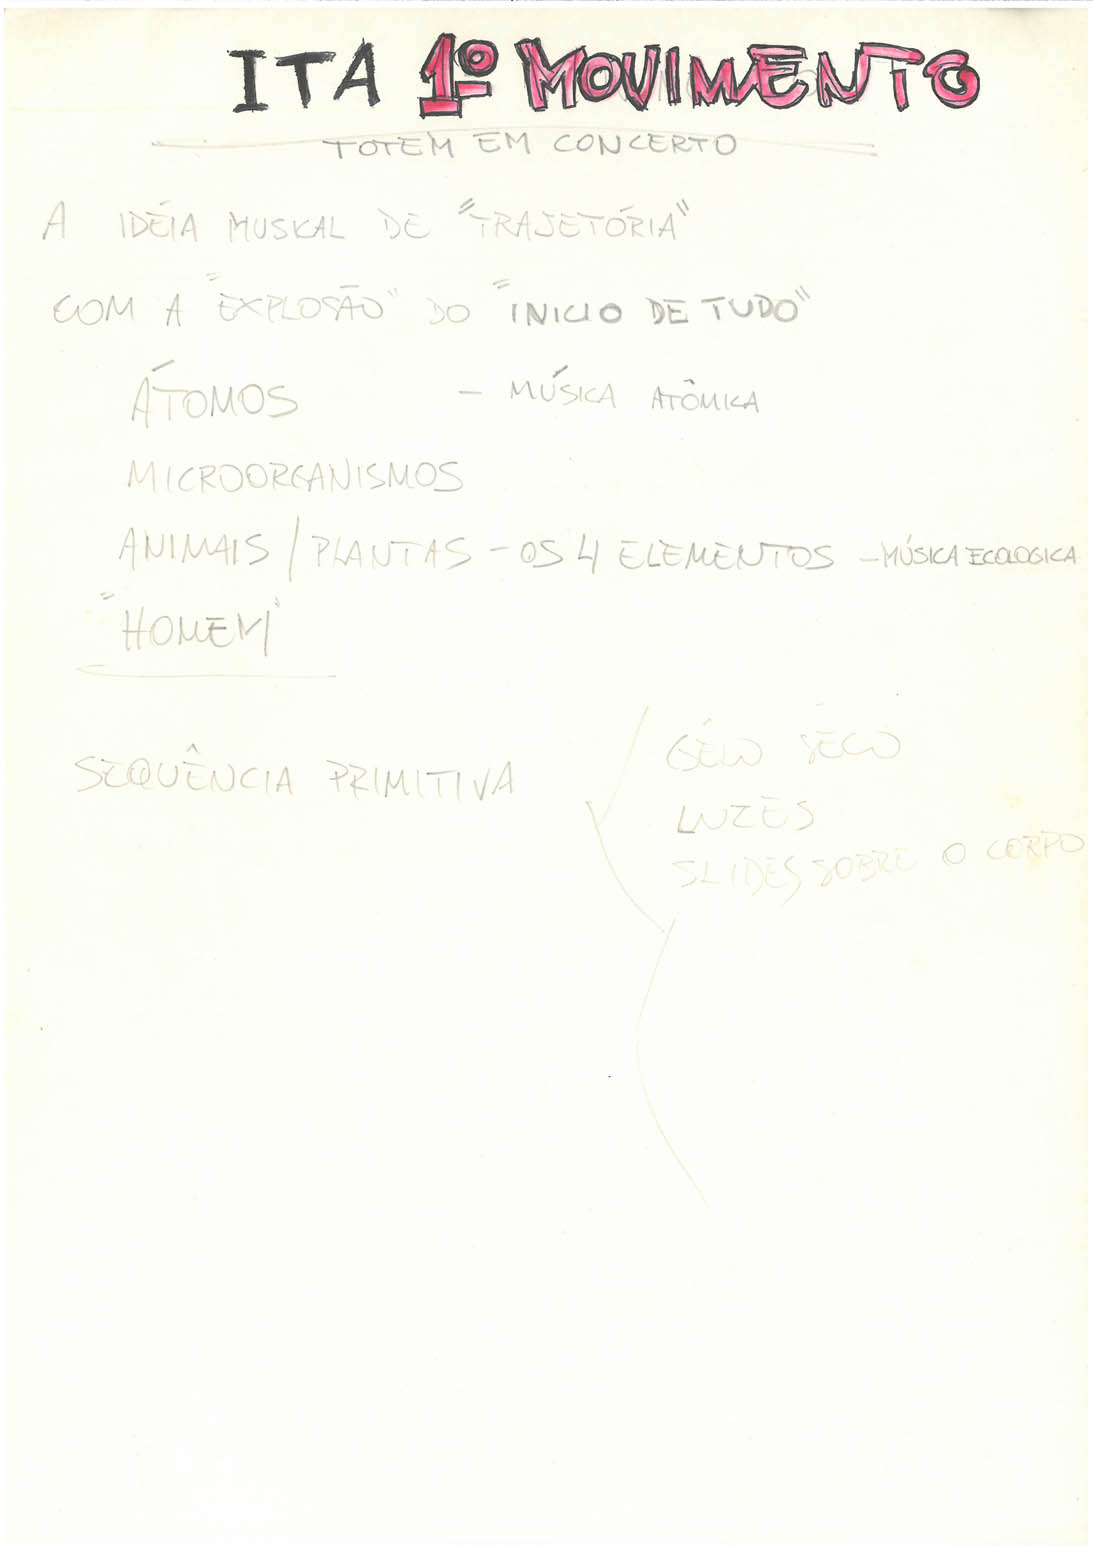 ITA 1º MOVIMENTO
TOTEM EM CONCERTO
A IDÉIA MUSICAL DE "TRAJETÓRIA"
COM A "EXPLOSÃO" DO "INICIO DE TUDO"
ÁTOMOS - MÚSICA ATÔMICA
MICROORGANISMOS
ANIMAIS / PLANTAS - OS 4 ELEMENTOS - MÚSICA ECOLOGICA
"HOMEM"
SEQUÊNCIA PRIMITIVA
GÊLO SÊCO
LUZES
SLIDES SOBRE O CORPO